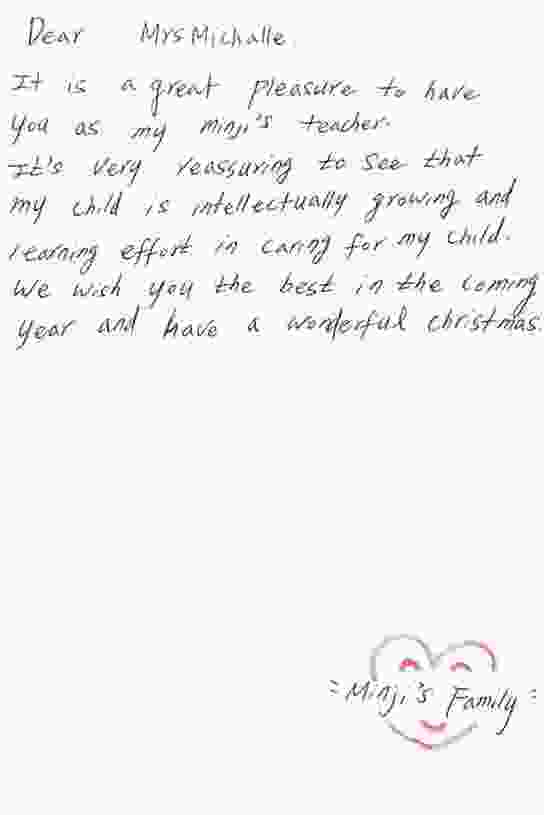 Dear Mrs Michalle.
It is a great pleasure to have
you as my minji's teacher.
It's very reassuring to see that
my child is intellectually growing and
learning effort in caring for my child.
We wish you the best in the coming
year and have a wonderful christmas.
= Minji's Family =